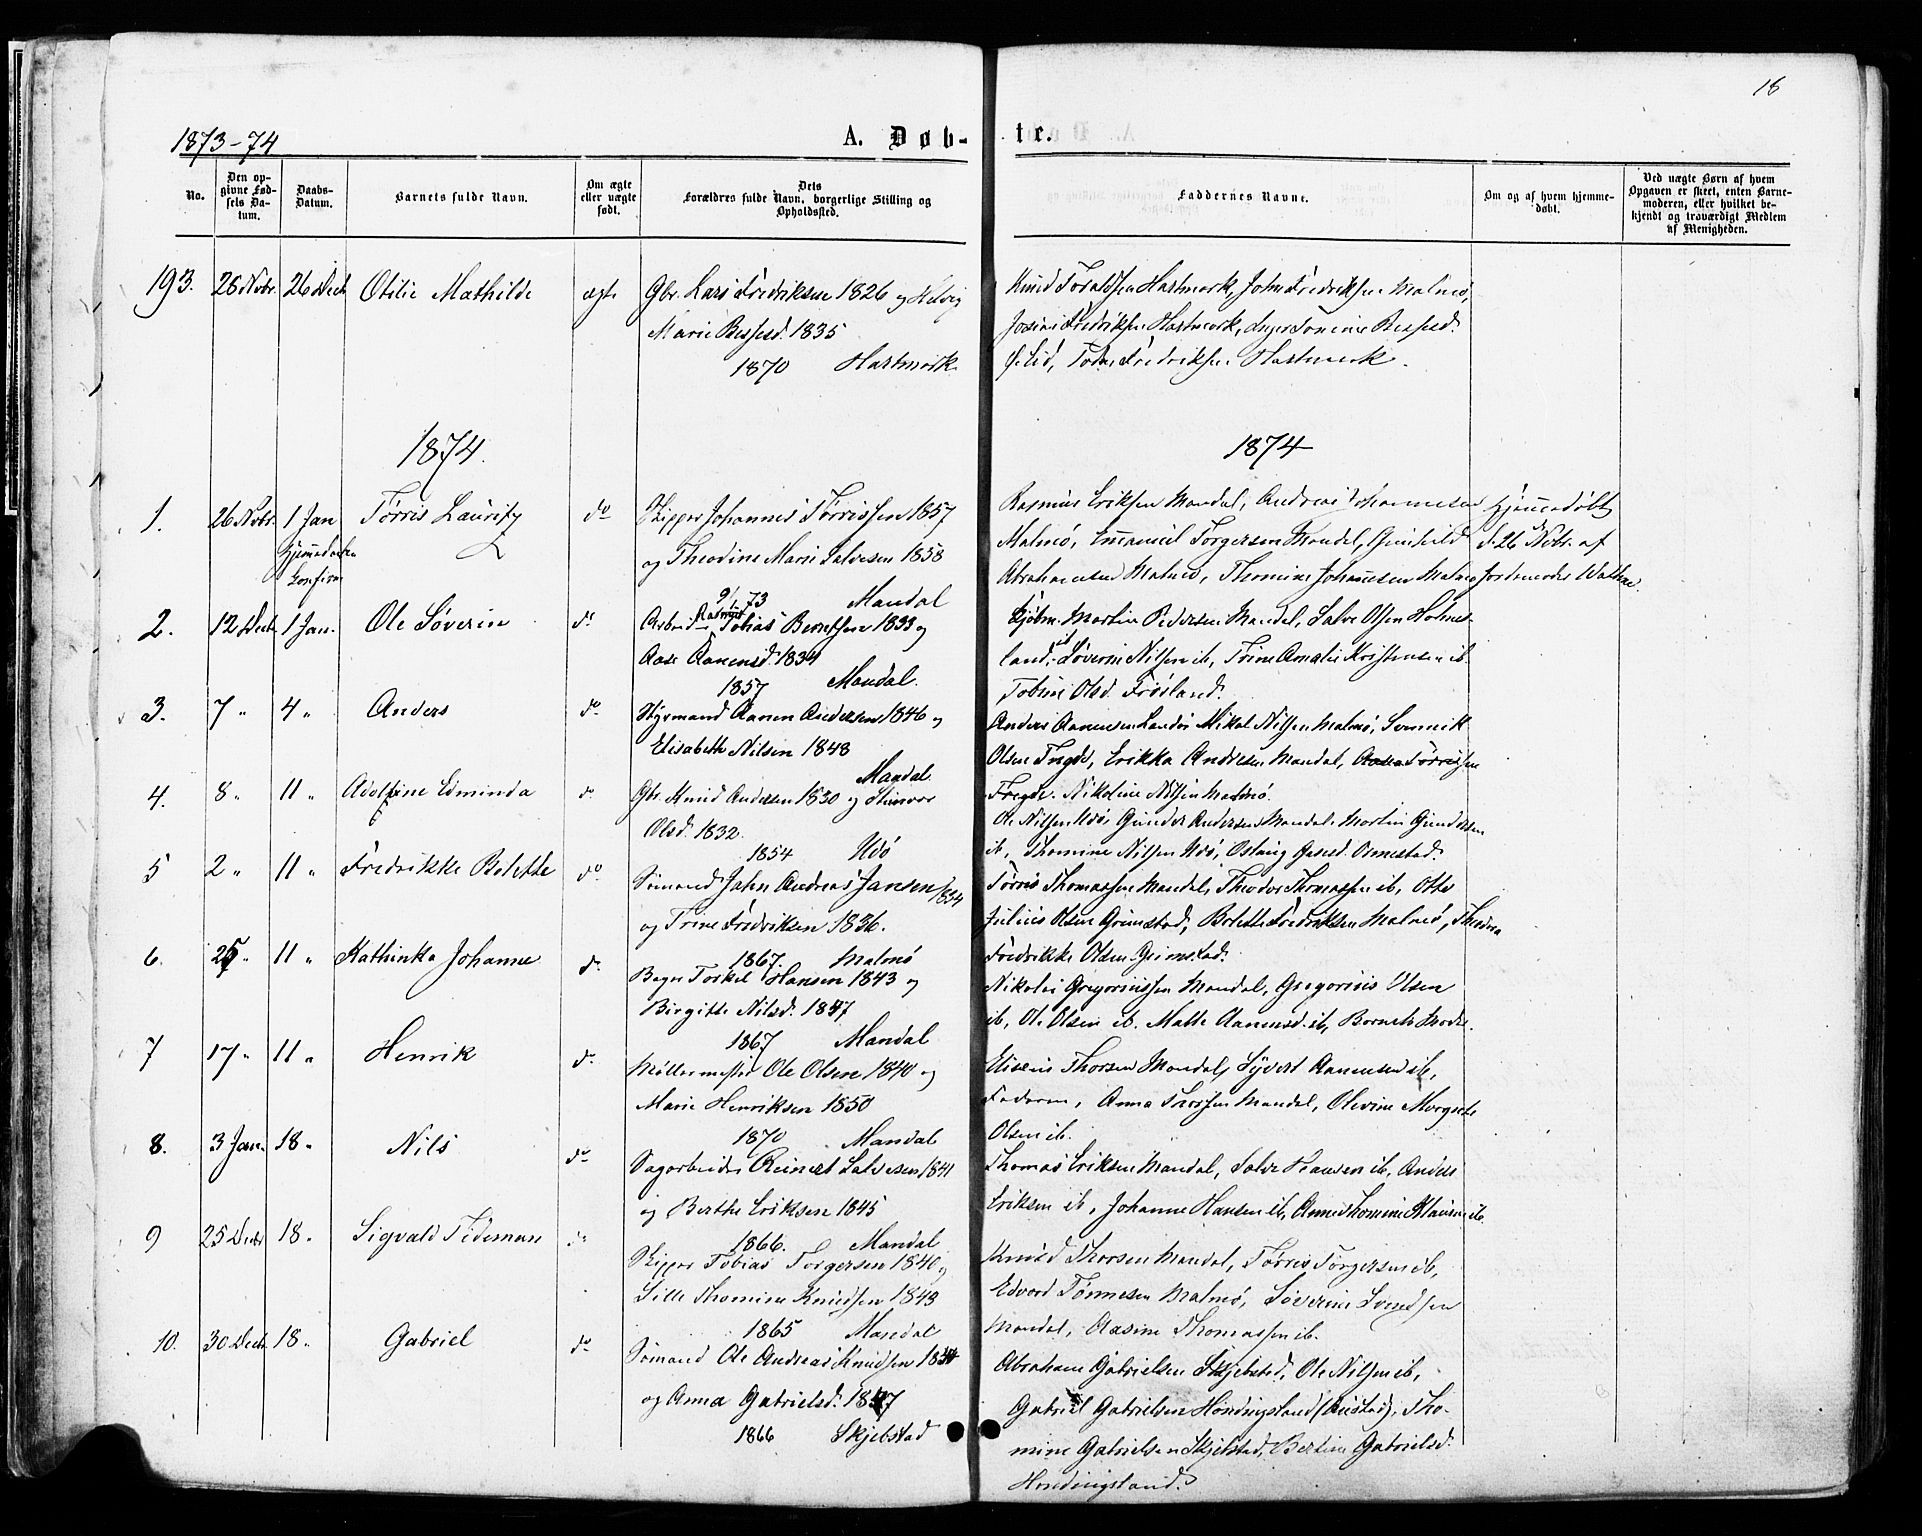 18
1873-74
A. Døb-
te.
No.
Den op-
givne Fød-
sels Da-
tum.
Daabs-
Datum.
Barnets fulde Navn.
Om ægte
eller uægte
født.
Dets
Forældres fulde Navn, borgerlige Stilling og
Opholdssted.
Faddernes Navne.
Om og af hvem hjemme-
døbt.
Ved uægte Børn af hvem
Opgaven er skeet, enten Barne-
moderen, eller hvilket be-
kjendt og troværdigt Medlem
af Menigheden.
193. 26 Nobr. 26 Dec Otilie Mathilde ægte Gbr. Lars Fredriksen 1826 og Helvig
Marie Bessesd. 1835
1870 Hartmork
Knud Toraldsen Hartmork, John Fredriksen Malmö,
Josine Fredriksen Hartmork, Inger Tomine
Fredriksen Hartmork.
1874.
1874
1. 26 Nobr. 1 Jan Tørris Lauritz do Skipper Johannes Tørrissen 1857
Hjemmedaaben
Confirm
og Theodine Marie Salvesen 1858
9/1 73 Mandal
Rasmus Eriksen Mandal, Andreas Johannesen
Malmö, Emanuel Torgersen Mandal, Gunhild
Abrahamsen Malmö, Thomine Johannesen Malmö
Hjemmedøbt
d. 26 Nobr. af
Jordemoder
2. 12 Dec 1 Jan. Ole Søverin do Arbeid. Rasmus Tobias Berntsen 1833 og
Aase Aanensd. 1834
1857 Mandal.
Martin Pedersen Mandal, Salve Olsen Holmes-
land, Søverin Nilsen ib, Trine Amalie Kristensen ib
Tobine Olsd. Frøsland.
3. 7 " 4 " Anders do Styrmand Aanen Andersen 1846 og
Elisabeth Nilsen 1848
Mandal
Anders Aanensen Landö Mikal Nilsen Malmö, Svennik
Olsen Tregde, Erikka Andresen Mandal, Aase Tørrissen
Tregde. Nikoline Nilsen Malmö.
4. 8 " 11 " Adolfine Edminda do Gbr. Knud Andersen 1830 og
Olsd. 1832.
1854 Udö
Ole Nilsen Udö, Gunder Andersen Mandal, Martin Gundersen
ib, Thomine Nilsen Udö, Ormestad.
5 2 " 11 " Fredrikke Bolette do Sömand Jahn Andreas Jansen 1834
og Trine Fredriksen 1836.
1867. Malmö
Tørris Thomassen Mandal, Theodor Thomassen ib, Otto
Julius Olsen Grimstad, Bolette Fredriksen Malmö, Theodora
Fredrikke Olsen Grimstad.
6. 25 " 11 " Kathinka Johanne do Bager Torkel Hansen 1843 og
Birgitte Nilsd. 1847
1867 Mandal
Nikolai Gregoriussen Mandal, Gregorius Olsen
ib, Ole Olsen ib. Malte Aanensd. ib, Barnets Moder.
7 17 " 11 " Henrik do Möllermester Ole Olsen 1840 og
Marie Henriksen 1850
1870 Mandal
Eliseus Thorsen Mandal, Syvert Aanensen ib,
Faderen, Anna Mandal, Olevine Margrete
Olsen ib.
8. 3 Jan. 18 " Nils do Sagarbeider Reinert Salvesen 1841
og Berthe Eriksen 1845
1866. Mandal
Thomas Eriksen Mandal, Salve Hansen ib, Anders
Eriksen ib, Johanne Hansen ib, Anne Thomine ib.
9 25 Decbr 18 " Sigvald Tideman do Skipper Tobias Torgersen 1840 og
Sille Thomine Knudsen 1843
1865 Mandal
Knud Thorsen Mandal, Tørris Torgersen ib,
Edvard Tönnesen Malmö, Søverine Svendsen
Mandal, Aasine Thomassen ib.
10. 30 Dec 18 " Gabriel do Sömand Ole Andreas Knudsen
og Anna Gabrielsd. 1847
1866 Skjebstad
Abraham Gabrielsen Skjebstad, Ole Nilsen ib,
Gabriel Gabrielsen Hondingsland, Tho-
mine Gabrielsen Skjebstad, Bertine Gabrielsd.
Hondingsland.